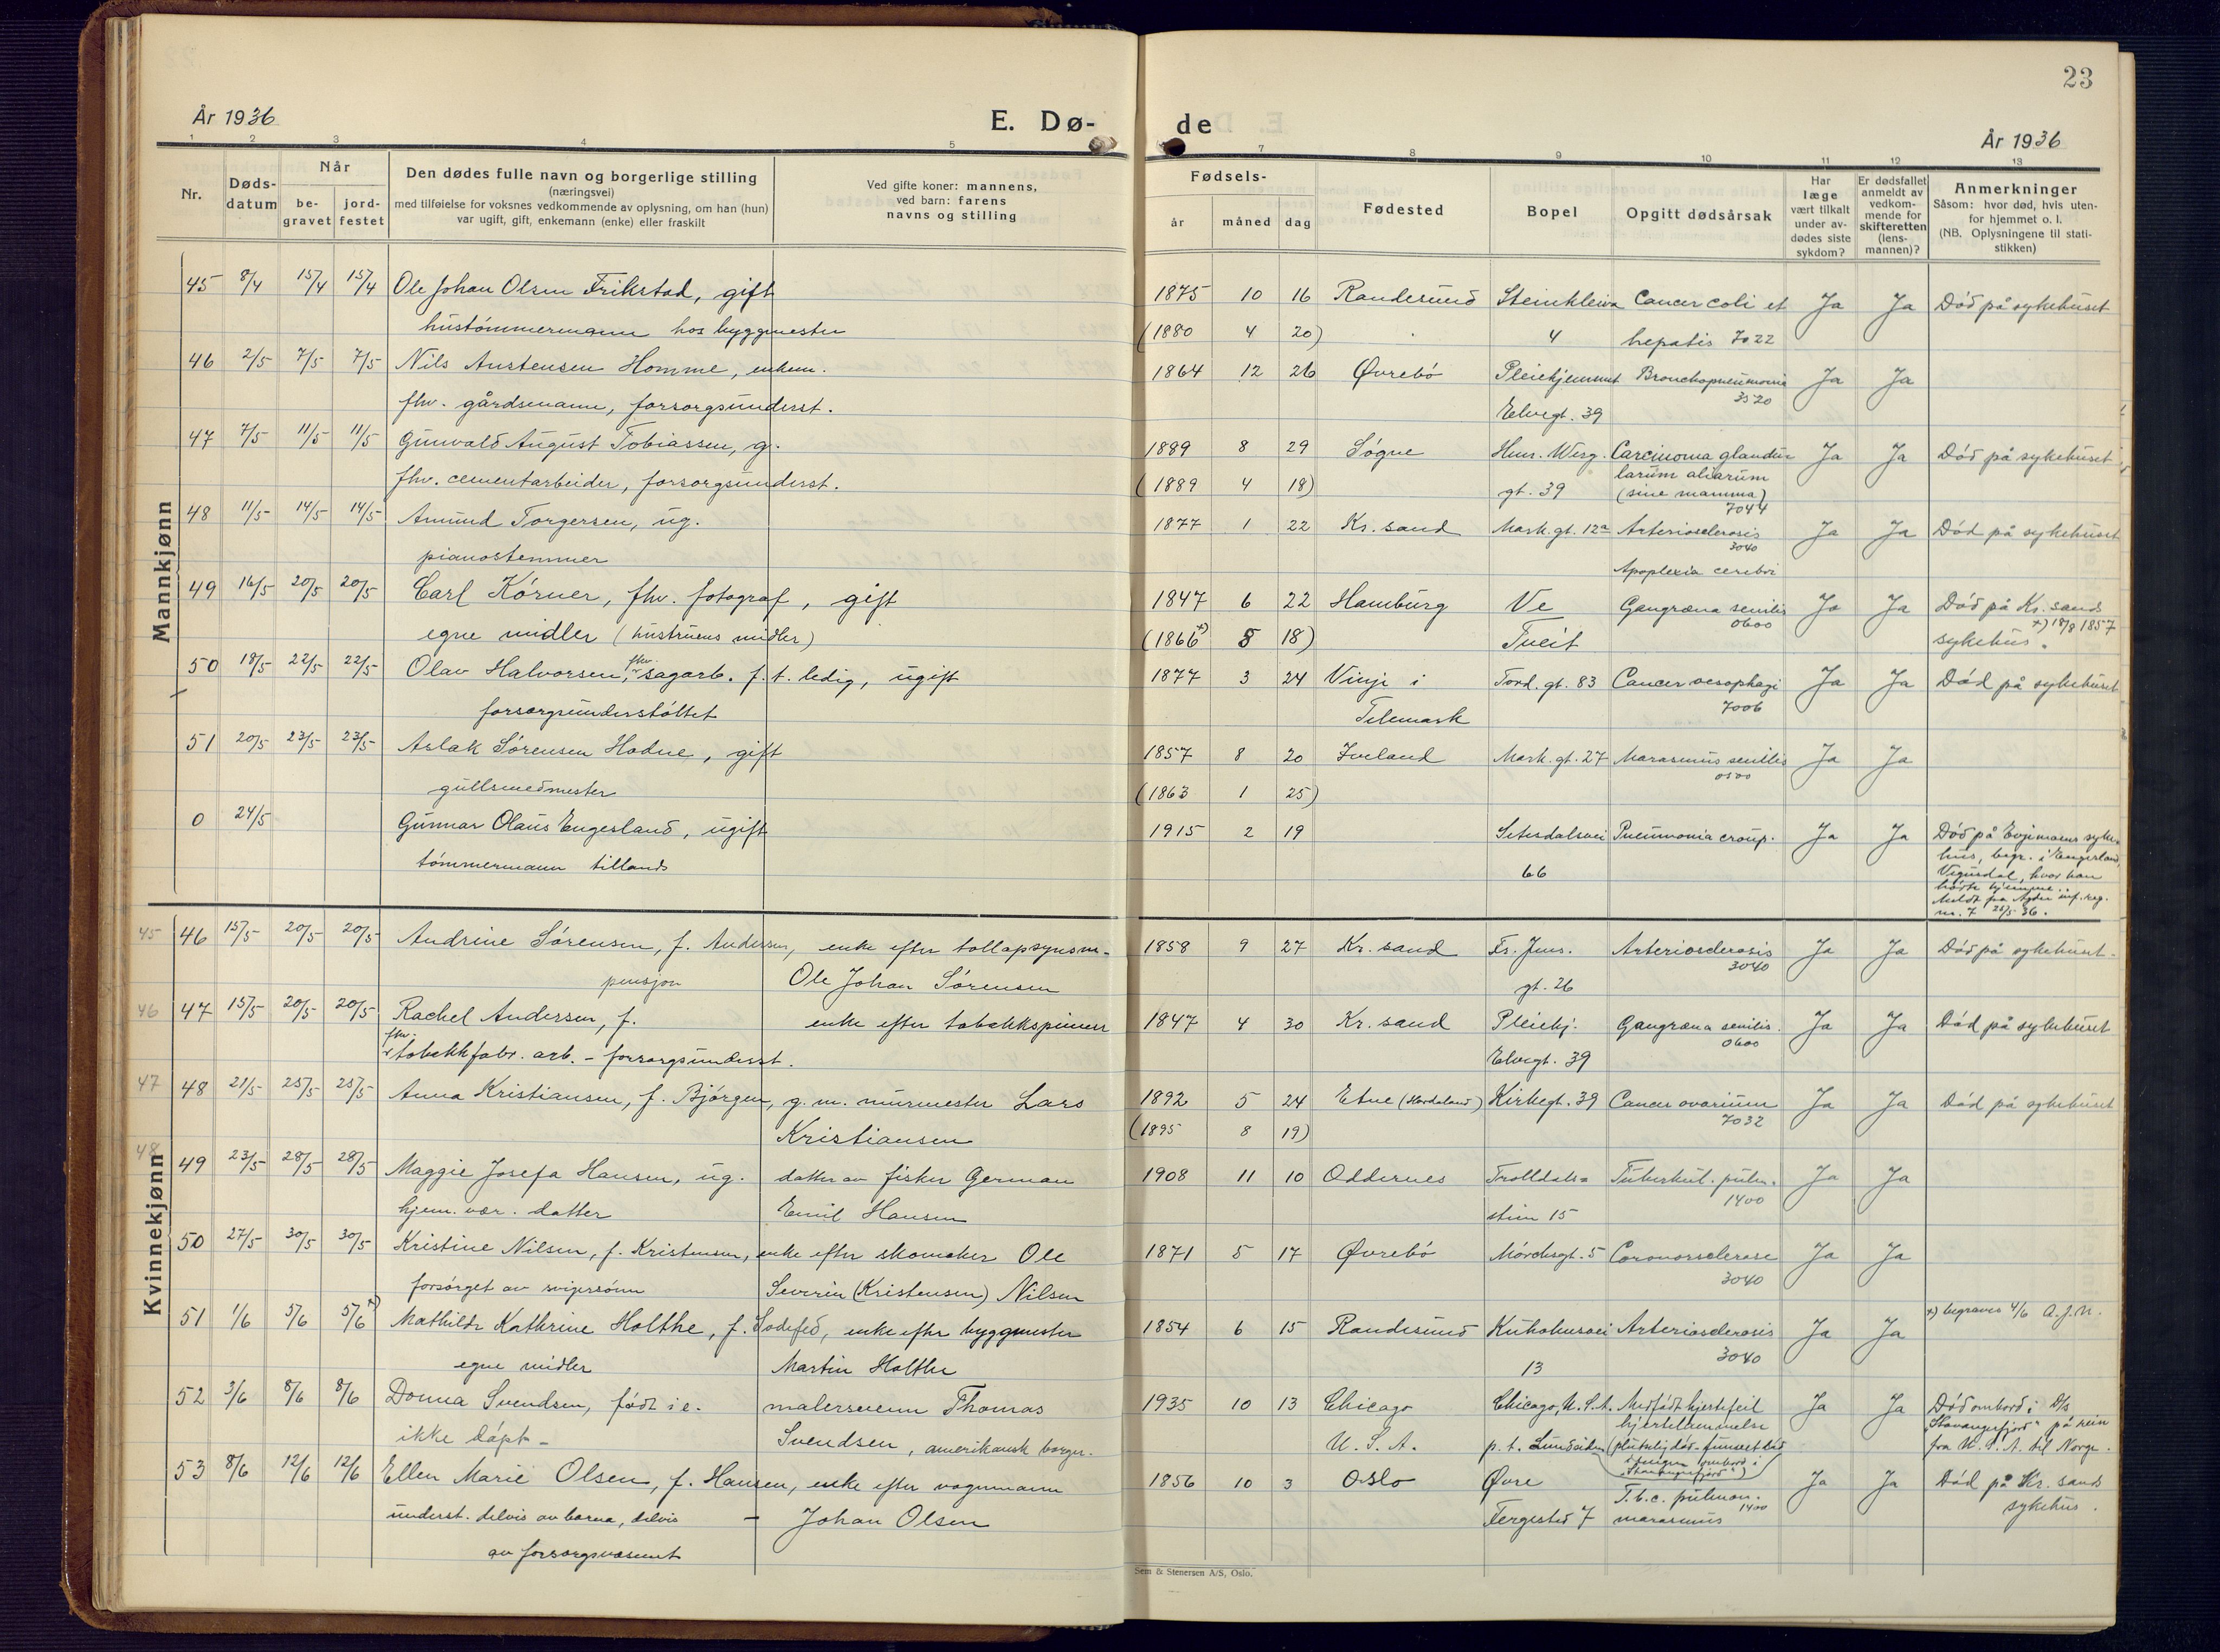 23
År 1936
E. Dø-
de
År 1936
1 2 3 4 5
7 8 9 10 11 12 13
Nr.
Døds-
datum
Når
be-
gravet
jord-
festet
Den dødes fulle navn og borgerlige stilling
(næringsvei)
med tilføielse for voksnes vedkommende av oplysning, om han (hun)
var ugift, gift, enkemann (enke) eller fraskilt
Ved gifte koner: mannens,
ved barn: farens
navns og stilling
Fødsels-
år måned dag
Fødested
Bopel
Opgitt dødsårsak
Har
læge
vært tilkalt
under av-
dødes siste
sykdom?
Er dødsfallet
anmeldt av
vedkom-
mende for
skifteretten
(lens-
mannen)?
Anmerkninger
Såsom: hvor død, hvis uten-
for hjemmet o. l.
(NB. Oplysningene til stati-
stikken)
Mannkjønn
45 8/4 15/4 15/4 Ole Johan Olsen Frikstad, gift 1875 10 16 Randesund Steinkleiva Cancer coli et Ja Ja Død på sykehuset
hustømmermann hos byggmester (1880 4 20) 4 hepatis 7022
46 2/5 7/5 7/5 Nils Austensen Homme, enkem. 1864 12 26 Øvrebø Pleiehjemmet Bronchopneumonia Ja Ja
3520
fhv. gårdsmann, forsorgsunderst. Elvegt. 39
47 7/5 11/5 11/5 Gunvald August Tobiassen, g. 1889 8 29 Søgne Henr. Werg. Carcinoma glandu- Ja Ja Død på sykehuset
larum aliarum
fhv. cementarbeider, forsorgsunderst. (1889 4 18) gt. 39 (sine mamma)
7044
48 11/5 14/5 14/5 Amund Torgersen, ug. 1877 1 22 Kr.sand Mark.gt. 12a Arteriosclerosis Ja Ja Død på sykehuset
3040
pianostemmer Apoplexia cerebri
49 16/5 20/5 20/5 Carl Körner, fhv. fotograf, gift 1847 6 22 Hamburg Ve Gangræna senilis Ja Ja Død på Kr.sands
0600 x) 18/8 1857
egne midler (hustruens midler) (1866 x) 5 18) Tveit sykehus.
50 18/5 22/5 22/5 Olav Halvorsen, fhv. sagarb. f.t. ledig, ugift 1877 3 24 Vinje i Tord. gt. 83 Cancer oesophagi Ja Ja Død på sykehuset
7006
forsorgsunderstøttet Telemark
51 20/5 23/5 23/5 Aslak Sørensen Hodne, gift 1857 8 20 Iveland Mark.gt. 27 Marasmus senilis Ja Ja
gullsmedmester (1863 1 25)
0 24/5 Gunnar Olaus Engesland, ugift 1915 2 19 Setesdalsvei Pneumonia croup. Ja Ja Død på Evjemoens syke-
hus, begr. i Engesland,
tømmermann tillands 66 Vegusdal, hvor han
hørte hjemme.
Meldt fra Agder inf. reg.
nr. 7 25/5 36.
Kvinnekjønn
45 46 15/5 20/5 20/5 Andrine Sørensen, f. Andersen, enke efter tollopsynsm. 1858 9 27 Kr. sand Fr. Jens. Arteriosclerosis Ja Ja Død på sykehuset.
3040
pensjon Ole Johan Sørensen gt. 26
46 47 15/5 20/5 20/5 Rachel Andersen, f. enke efter tobakkspinner 1847 4 30 Kr. sand Pleiehj. Gangræna senilis. Ja Ja Død på sykehuset
0600
fhv. tobakkfabr. arb. - forsorgsunderst. Elvegt. 39
47 48 21/5 25/5 25/5 Anna Kristiansen, f. Bjørgen, g. m. murmester Lars 1892 5 24 Etne (Hordaland) Kirkegt. 39 Cancer ovarium Ja Ja Død på sykehuset
7032
Kristiansen (1895 8 19)
48 49 23/5 28/5 28/5 Maggie Josefa Hansen, ug. datter av fisker German 1908 11 10 Oddernes Trolldals- Tuberkul. pulm. Ja Ja
1400
hjem. vær. datter Emil Hansen stien 15
50 27/5 30/5 30/5 Kristine Nilsen, f. Kristensen, enke efter skomaker Ole 1871 5 17 Øvrebø Mørchsgt. 5 Coronarsclerose Ja Ja
3040
forsørget av svigersønn Severin (Kristensen) Nilsen
51 1/6 5/6 5/6 x) Mathilde Kathrine Holthe, f. enke efter byggmester 1854 6 15 Randesund Kuholmsvei Arteriosclerosis Ja Ja x) begraves 4/6 A.J.N.
3040
egne midler Martin Holthe 13
52 3/6 8/6 8/6 Donna Svendsen, født i e. malersvenn Thomas 1935 10 13 Chicago Chicago, U.S.A. Medfødt hjertefeil Ja Ja Død ombord i D/s
hjertelammelse "Stavangerfjord" på reise
ikke døpt - Svendsen, amerikansk borger. U.S.A. p.t. Lundsiden (plutselig død - funnet død fra U.S.A. til Norge.
i sengen ombord i
"Stavangerfjord")
53 8/6 12/6 12/6 Ellen Marie Olsen, f. Hansen, enke efter vognmann 1856 10 3 Oslo Øvre T.b.c. pulmon. Ja Ja Død på Kr. sands
1400
underst. delvis av barna, delvis - Johan Olsen Fergested 7 marasmus sykehus.
av forsorgsvesenet
Sem & Stenersen A/S, Oslo.